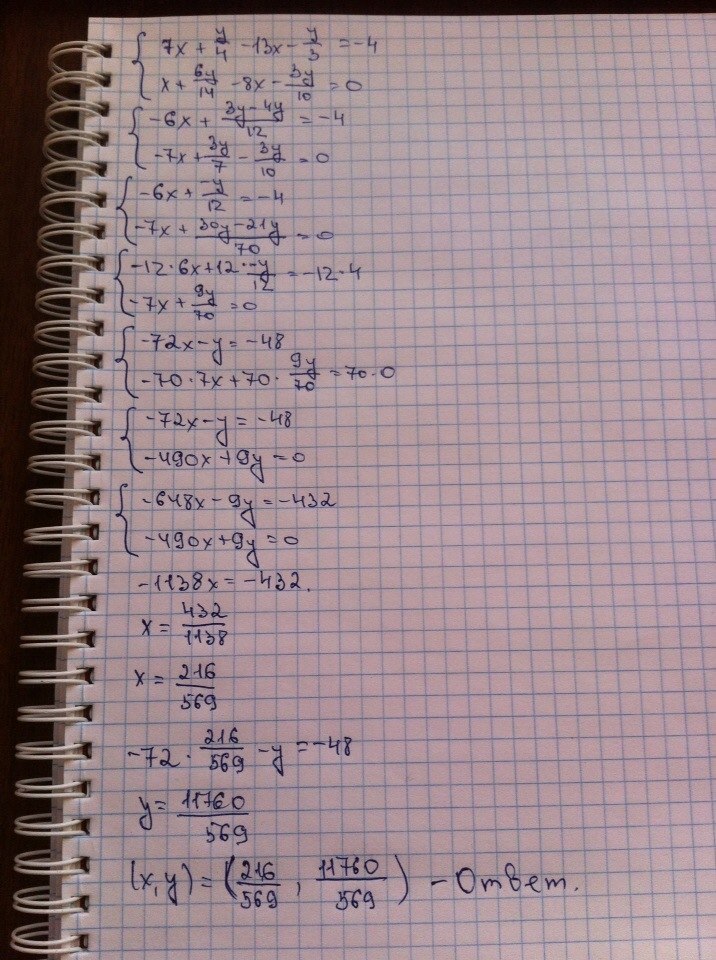 7x + y/4 - 13x - y/3 = -4
x + 6y/14 - 8x - 3y/10 = 0
-6x + (3y-4y)/12 = -4
-7x + 3y/7 - 3y/10 = 0
-6x + -y/12 = -4
-7x + (30y-21y)/70 = 0
-12·6x + 12·-y/12 = -12·4
-7x + 9y/70 = 0
-72x - y = -48
-70·7x + 70·9y/70 = 70·0
-72x - y = -48
-490x + 9y = 0
-648x - 9y = -432
-490x + 9y = 0
-1138x = -432.
x = 432/1138
x = 216/569
-72·216/569 - y = -48
y = 11760/569
(x,y) = (216/569, 11760/569) - Ответ.